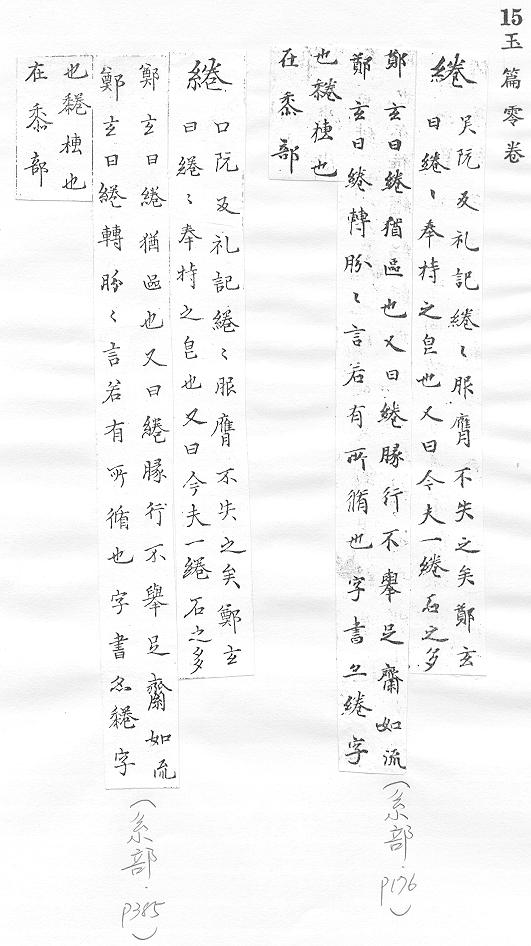 15玉篇零卷
綣
口阮反礼記綣〻服膺不失之矣鄭玄
曰綣〻奉持之皃也又曰今夫一綣石之多
鄭玄曰綣猶區也又曰綣豚行不舉足齋如流
鄭玄曰綣轉豚〻言若有所循也字書亦綣字
也䅚㮔也
在黍部
（糸部．p176）
綣
口阮反礼記綣〻服膺不失之矣鄭玄
曰綣〻奉持之皃也又曰今夫一綣石之多
鄭玄曰綣猶區也又曰綣豚行不舉足齋如流
鄭玄曰綣轉豚〻言若有所循也字書亦䅚字
也䅚㮔也
在黍部
（糸部．p385）